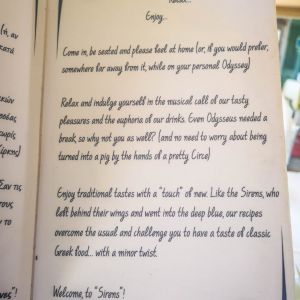 Relax...
Enjoy...
Come in, be seated and please feel at home (or, if you would prefer,
somewhere far away from it, while on your personal Odyssey)
Relax and indulge yourself in the musical call of our tasty
pleasures and the euphoria of our drinks. Even Odysseus needed a
break, so why not you as well? (and no need to worry about being
turned into a pig by the hands of a pretty Circe)
Enjoy traditional tastes with a "touch" of new. Like the Sirens, who
left behind their wings and went into the deep blue, our recipes
overcome the usual and challenge you to have a taste of classic
Greek food... with a minor twist.
Welcome, to "Sirens"!